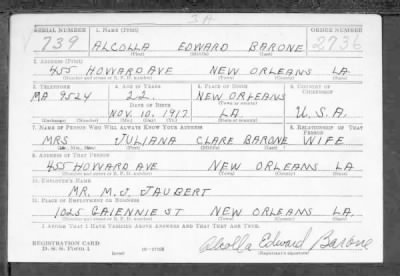 3A
SERIAL NUMBER 1. NAME (Print) ORDER NUMBER
739 ALCOLLA EDWARD BARONE 2736
(First) (Middle) (Last)
2. ADDRESS (Print)
455 HOWARD AVE NEW ORLEANS LA
(Number and street or R. F. D. number) (Town) (County) (State)
3. TELEPHONE 4. AGE IN YEARS 5. PLACE OF BIRTH 6. COUNTRY OF CITIZENSHIP
MA 9524 22 NEW ORLEANS
DATE OF BIRTH (Town or county)
NOV. 10. 1917 LA U.S.A.
(Exchange) (Number) (Mo.) (Day) (Yr.) (State or country)
7. NAME OF PERSON WHO WILL ALWAYS KNOW YOUR ADDRESS 8. RELATIONSHIP OF THAT PERSON
MRS JULIANA CLARE BARONE WIFE
(Mr., Mrs., Miss) (First) (Middle) (Last)
9. ADDRESS OF THAT PERSON
455 HOWARD AVE NEW ORLEANS LA
(Number and street or R. F. D. number) (Town) (County) (State)
10. EMPLOYER'S NAME
MR. M. J. JAUBERT
11. PLACE OF EMPLOYMENT OR BUSINESS
1025 GAIENNIE ST NEW ORLEANS LA.
(Number and street or R. F. D. number) (Town) (County) (State)
I AFFIRM THAT I HAVE VERIFIED ABOVE ANSWERS AND THAT THEY ARE TRUE.
REGISTRATION CARD
D. S. S. Form 1 (over) Alcolla Edward Barone
(Registrant's signature)